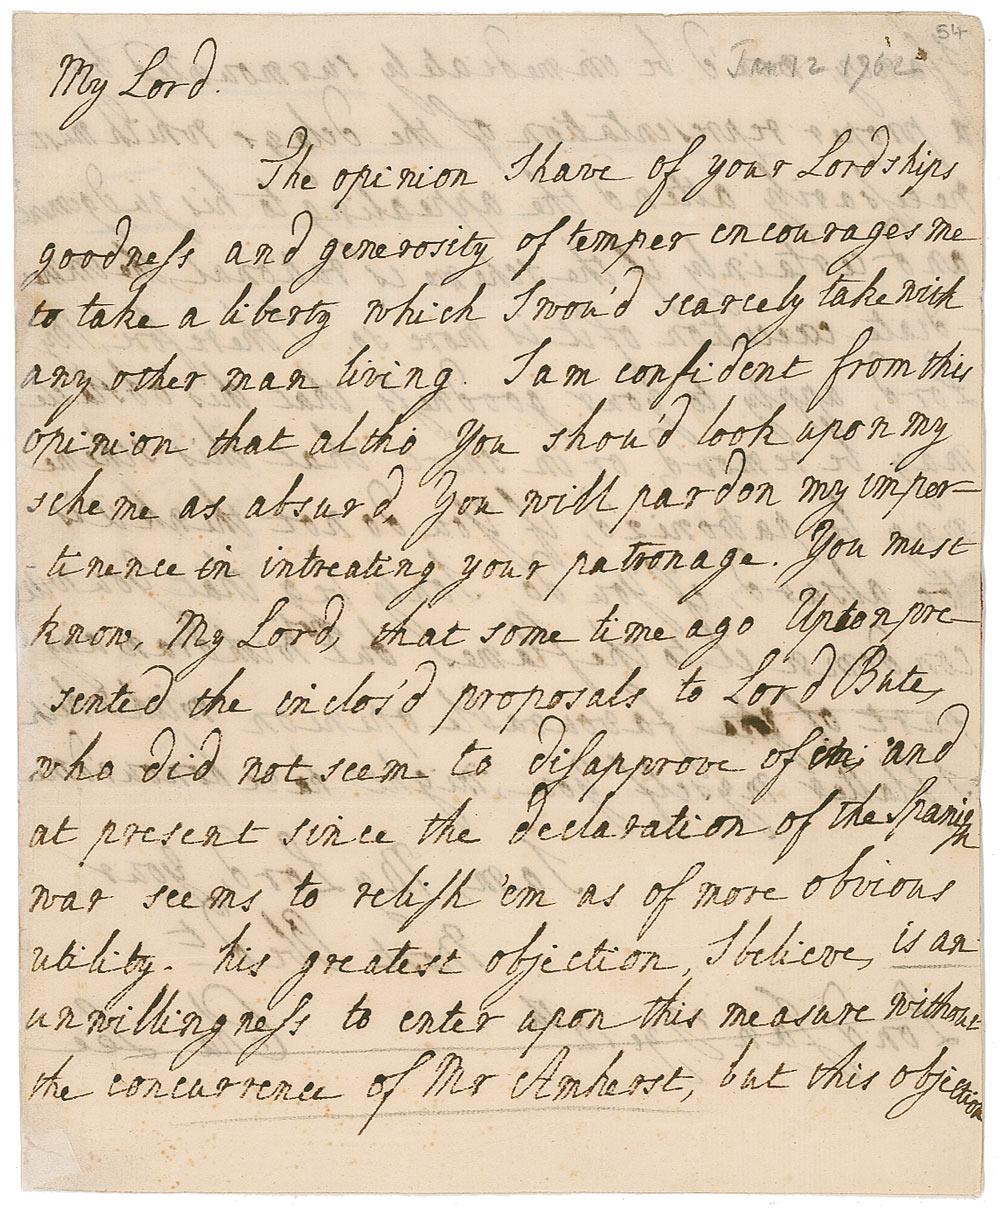 54
Jan 12 1762
My Lord.
The opinion I have of your Lordships
goodness and generosity of temper encourages me
to take a liberty which I wou'd scarcely take with
any other man living. I am confident from this
opinion that altho You shou'd look upon my
scheme as absurd, You will pardon my imper-
tinence in intreating your patronage. You must
know, My Lord, that some time ago Upton pre-
sented the inclos'd proposals to Lord Bute,
who did not seem to disapprove of 'em; and
at present since the declaration of the Spanish
war seems to relish 'em as of more obvious
utility. his greatest objection, I believe, is an
unwillingness to enter upon this measure without
the concurrence of Mr Amherst, but this objection